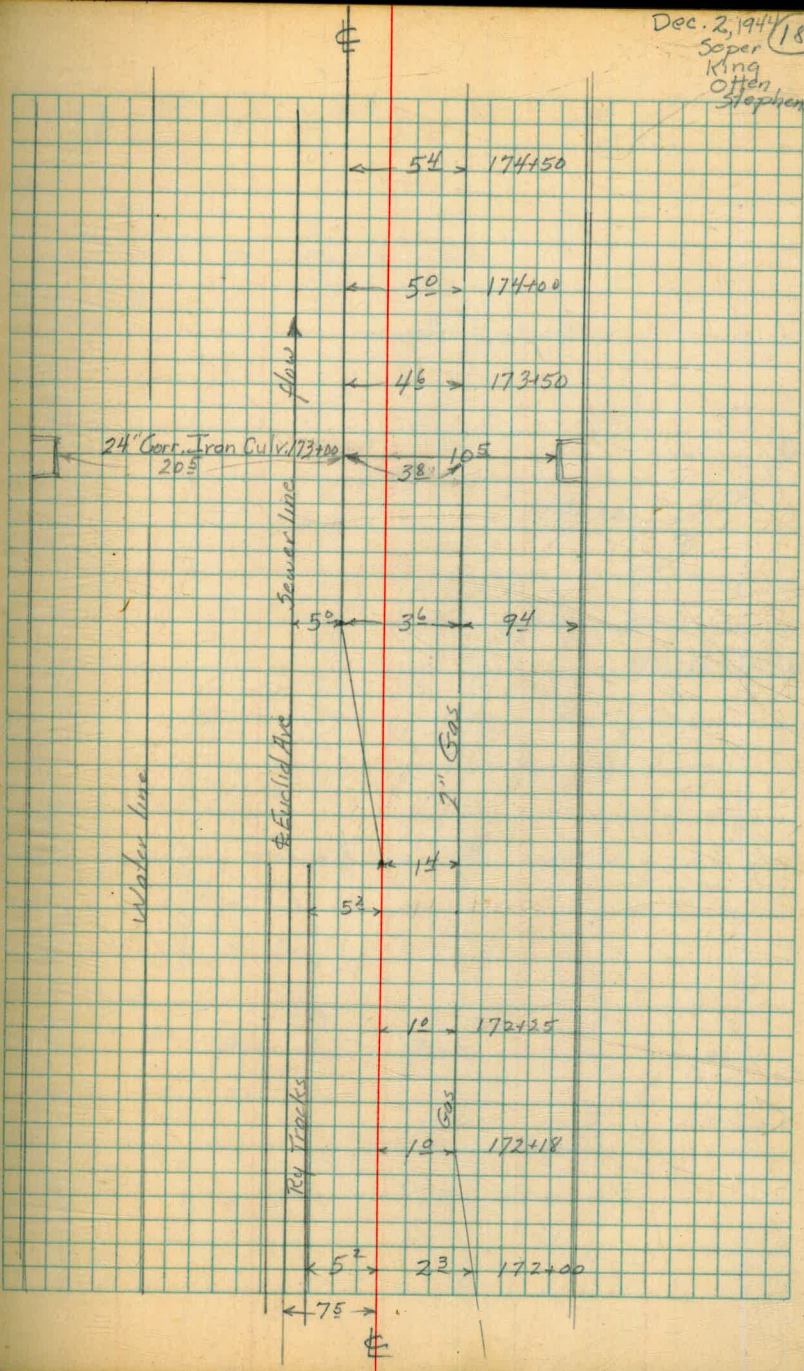 Dec. 2, 1944 18
Soper
King
Otten
Stephen
℄
5 4 174+50
5 0 174+00
flow
4 6 173+50
24" Corr. Iron Culv. 173+00
20 5
3 8
10 5
Sewer line
5 0 3 6 9 4
2" Gas
℄ Euclid Ave
Water line
1 4
5 2
1 0 172+25
Gas
Ry Tracks
1 0 172+18
5 2 2 3 172+00
7 5
℄